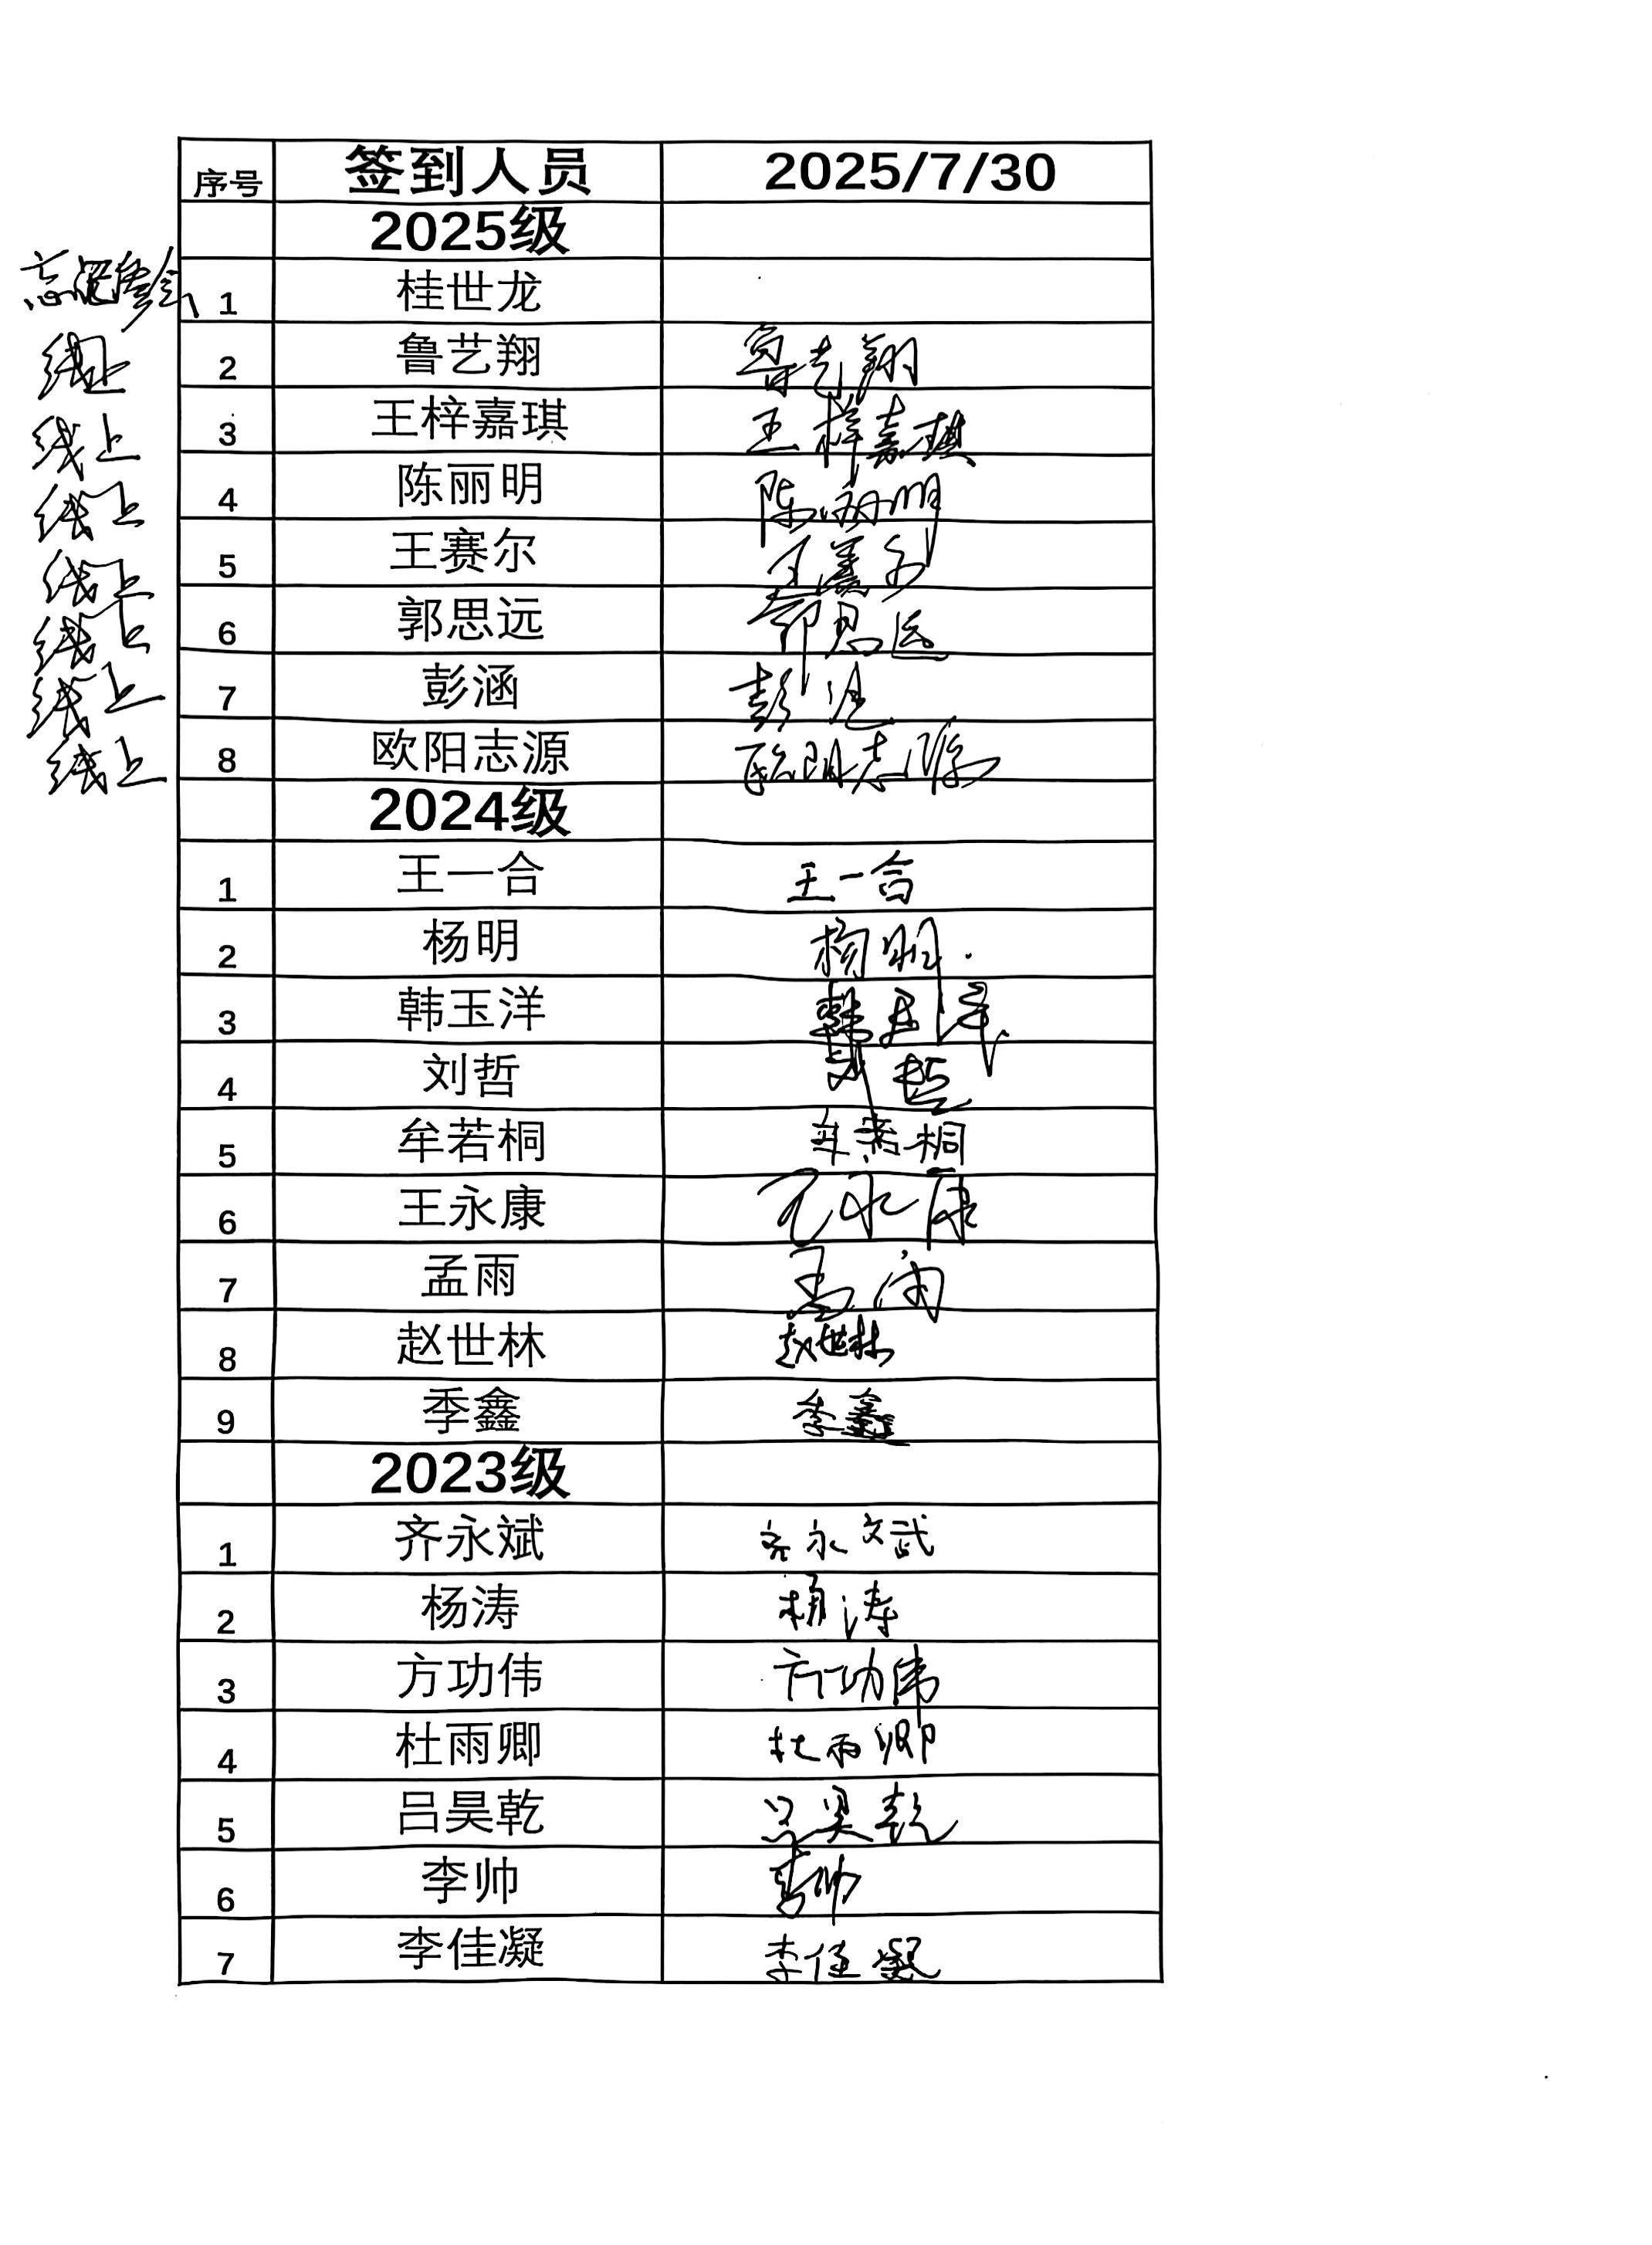 序号 签到人员 2025/7/30
2025级
忘记参会 1 桂世龙
线上 2 鲁艺翔 鲁艺翔
线上 3 王梓嘉琪 王梓嘉琪
线上 4 陈丽明 陈丽明
线上 5 王赛尔 王赛尔
线上 6 郭思远 郭思远
线上 7 彭涵 彭涵
线上 8 欧阳志源 欧阳志源
2024级
1 王一合 王一合
2 杨明 杨明
3 韩玉洋 韩玉洋
4 刘哲 刘哲
5 牟若桐 牟若桐
6 王永康 王永康
7 孟雨 孟雨
8 赵世林 赵世林
9 季鑫 季鑫
2023级
1 齐永斌 齐永斌
2 杨涛 杨涛
3 方功伟 方功伟
4 杜雨卿 杜雨卿
5 吕昊乾 吕昊乾
6 李帅 李帅
7 李佳凝 李佳凝